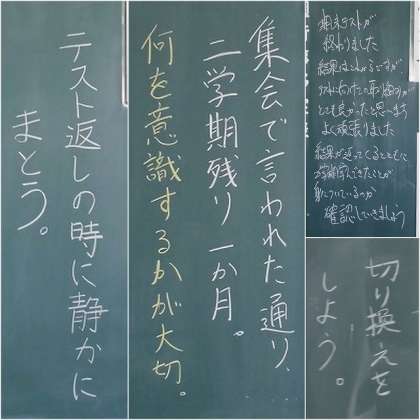 テスト返しの時に静かに
まとう。
集会で言われた通り、
二学期残り一か月。
何を意識するかが大切。
期末テストが
終わりました
結果はこれからですが
テストにむけての取り組みが
とても良かったと思います
よく頑張りました
結果が返ってくるとともに
身についているのか
確認していきましょう
切り換えを
しよう。